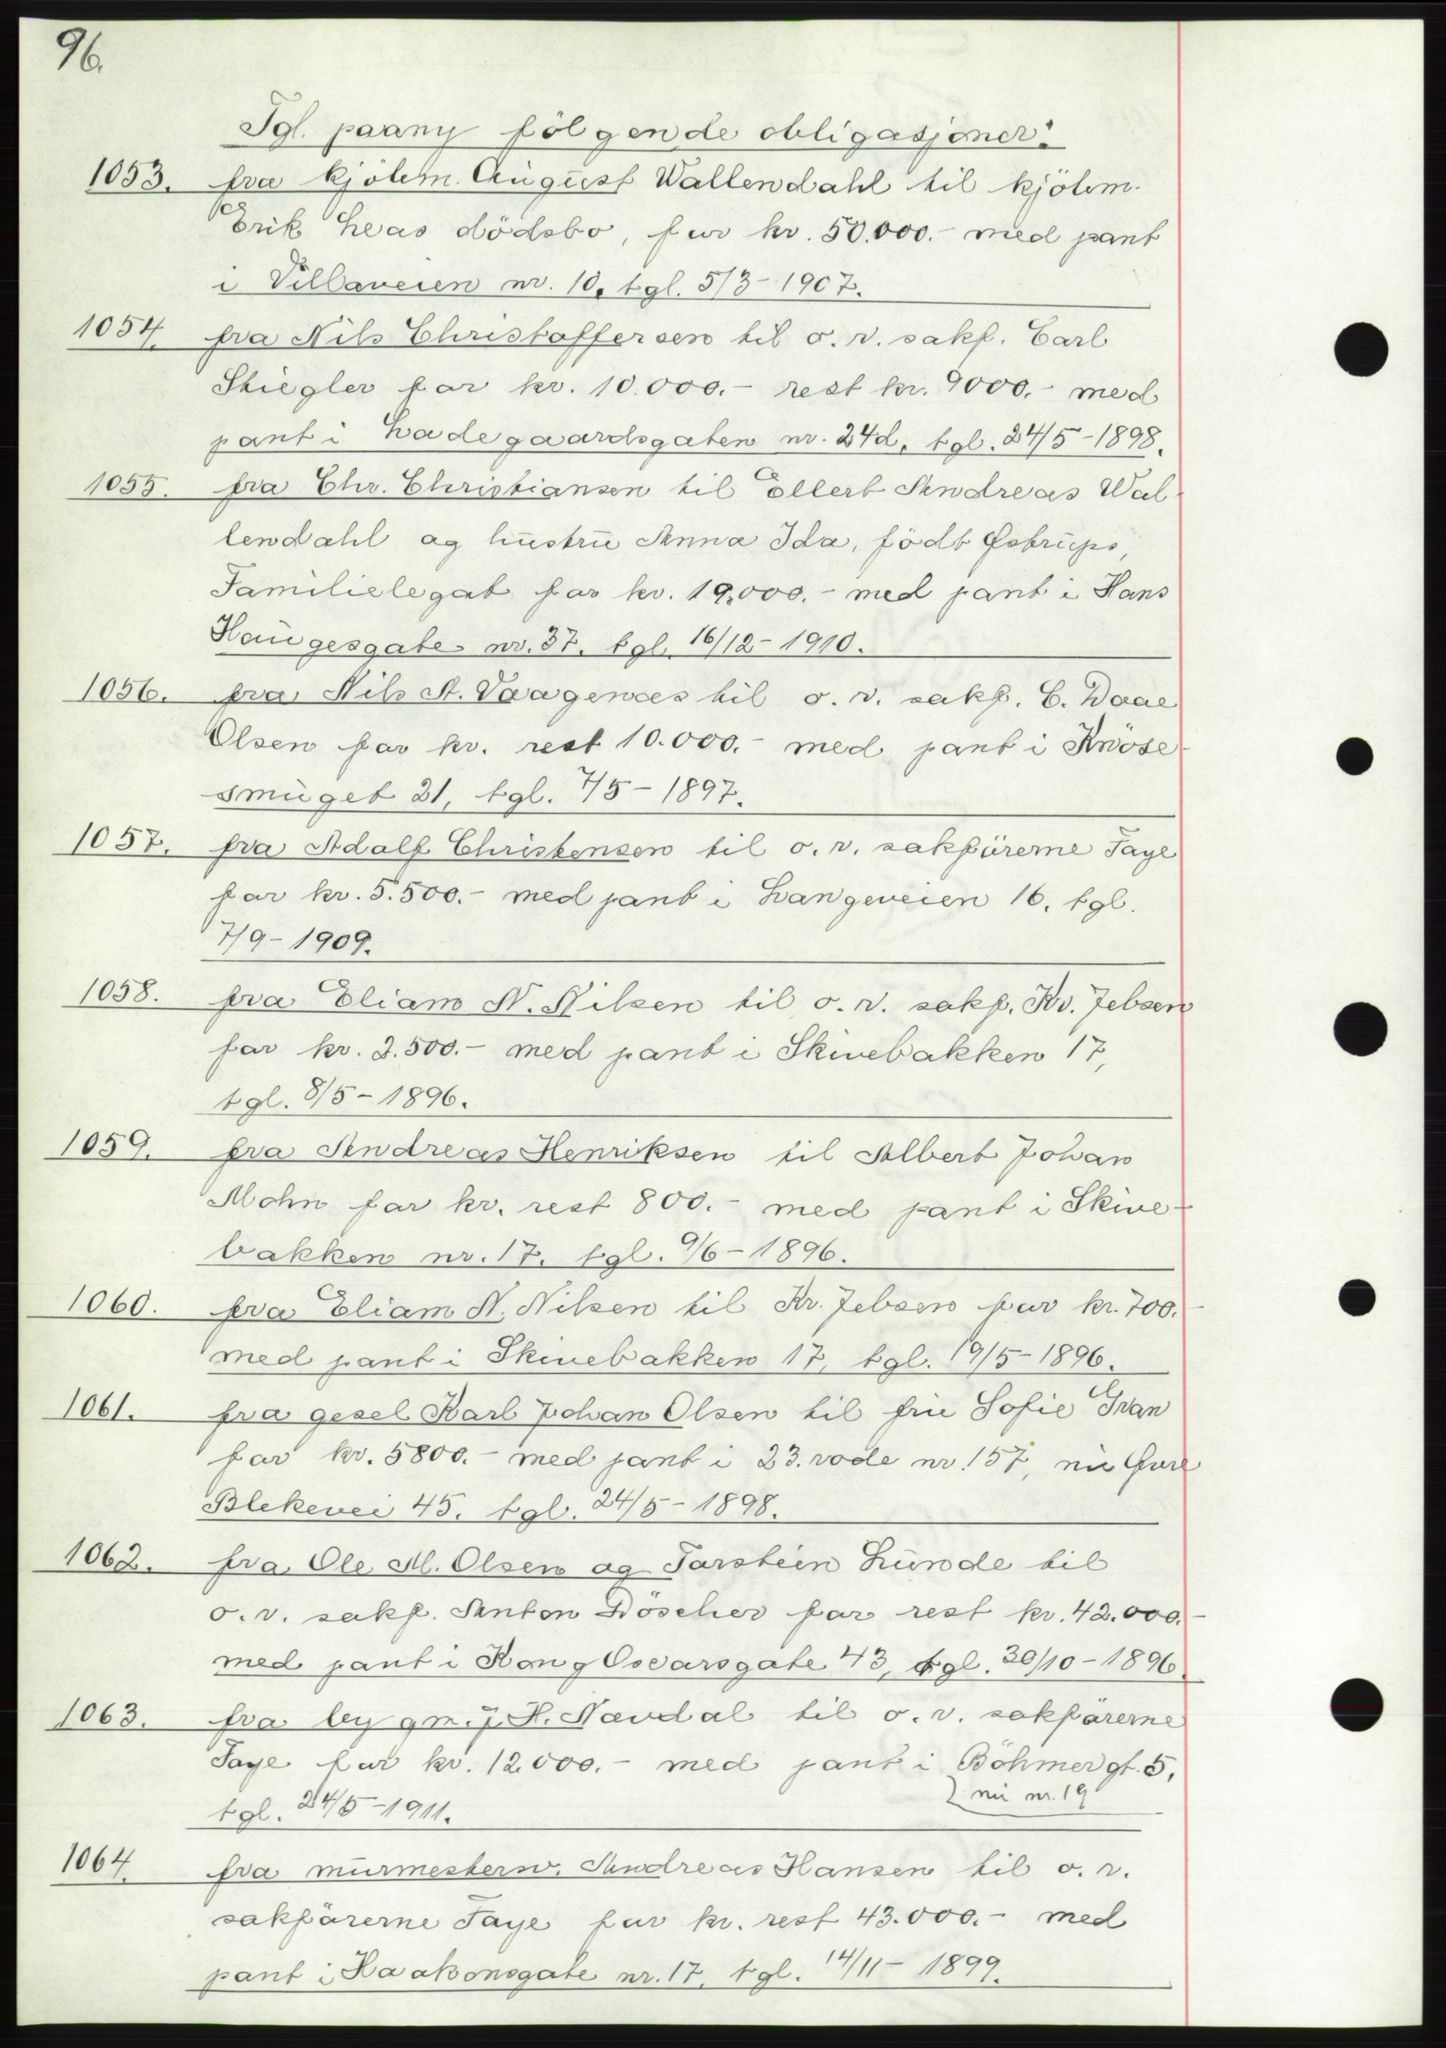 96.
Tgl. paany følgende obligasjoner:
1053. fra kjøbm. August Wallendahl til kjöbm.
Erik Leas dödsbo, for kr. 50.000.- med pant
i Villaveien nr. 10, tgl. 5/3-1907.
1054. fra Nils Christoffersen til o. r. sakf. Carl
Stiegler for kr. 10.000.- rest kr. 9000.- med
pant i Ladegaardsgaten nr. 24d, tgl. 24/5-1898.
1055. fra Chr. Christiansen til Ellert Andreas Wal-
lendahl og hustru Anna Ida, födt Østrups,
Familielegat for kr. 19.000.- med pant i Hans
Haugesgate nr. 37. tgl. 16/12-1910.
1056. fra Nils A. Vaagenæs til o. r. sakf. C. Daae
Olsen for kr. rest 10.000.- med pant i Knöse-
smuget 21, tgl. 7/5-1897.
1057. fra Adolf Christensen til o. r. sakförerne Faye
for kr. 5.500.- med pant i Langeveien 16. tgl.
7/9-1909.
1058. fra Eliam N. Nilsen til o. r. sakf. Kr. Jebsen
for kr. 2.500.- med pant i Skivebakken 17,
tgl. 8/5-1896.
1059. fra Andreas Henriksen til Albert Johan
Mohn for kr. rest 800.- med pant i Skive-
bakken nr. 17. tgl. 9/6-1896.
1060. fra Eliam N. Nilsen til Kr. Jebsen for kr. 700.-
med pant i Skivebakken 17, tgl. 19/5-1896.
1061. fra gesel Karl Johan Olsen til fru Sofie Gran
for kr. 5800.- med pant i 23. rode nr. 157, nu Øvre
Blekevei 45. tgl. 24/5-1898.
1062. fra Ole M. Olsen og Torstein Lunde til
o. r. sakf. Anton Döscher for rest kr. 42.000.-
med pant i Kong Oscarsgate 43, tgl. 30/10-1896.
1063. fra bygm. J. H. Nævdal til o. r. sakförerne
Faye for kr. 12.000.- med pant i Böhmergt. 5,
nu nr. 19
tgl. 24/5-1911.
1064. fra murmesterne Andreas Hansen til o. r.
sakförerne Faye for kr. rest 43.000.- med
pant i Haakonsgate nr. 17, tgl. 14/11-1899.